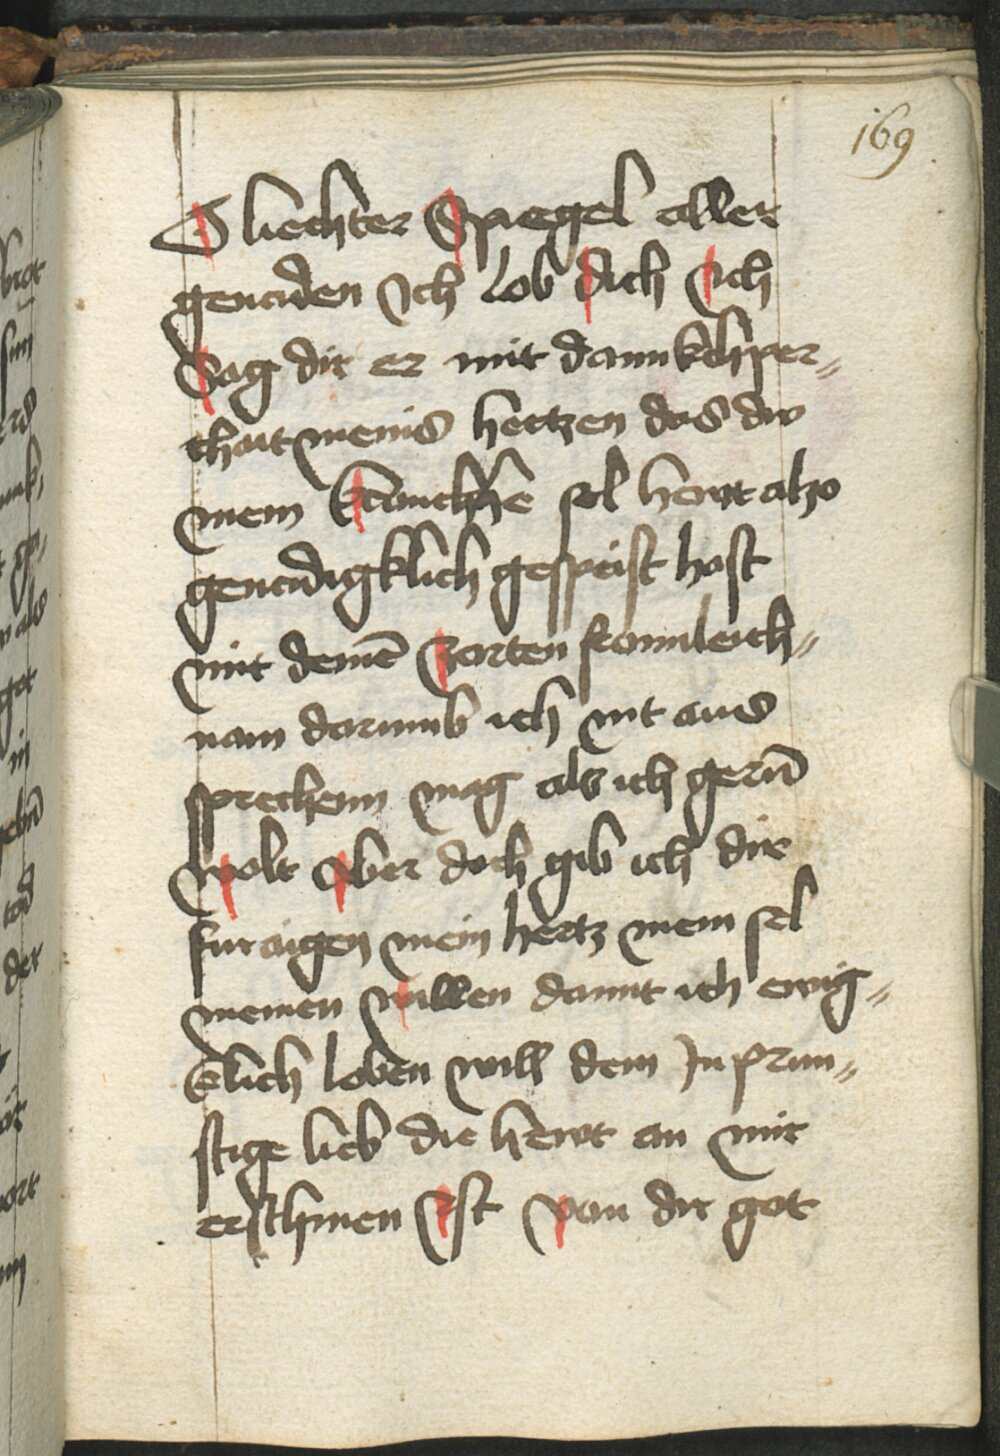 169
O liechter Spiegel aller
genaden Ich lob dich Ich
Sag dir er mit dannkchper„
chait meins hertzen das du
mein kranckhe sel hewt also
genadigklich gespeist hast
mit deinē zarten fronnleich„
nam darumb ich nit aus
sprechenn mag als ich gern̄
wolt Aber doch gib ich dir
fur aigen mein hertz mein sel
meinen willen damit ich ewig„
klich loben will dein Inprun„
stige lieb die hewt an mir
erschinen Ist von dir got